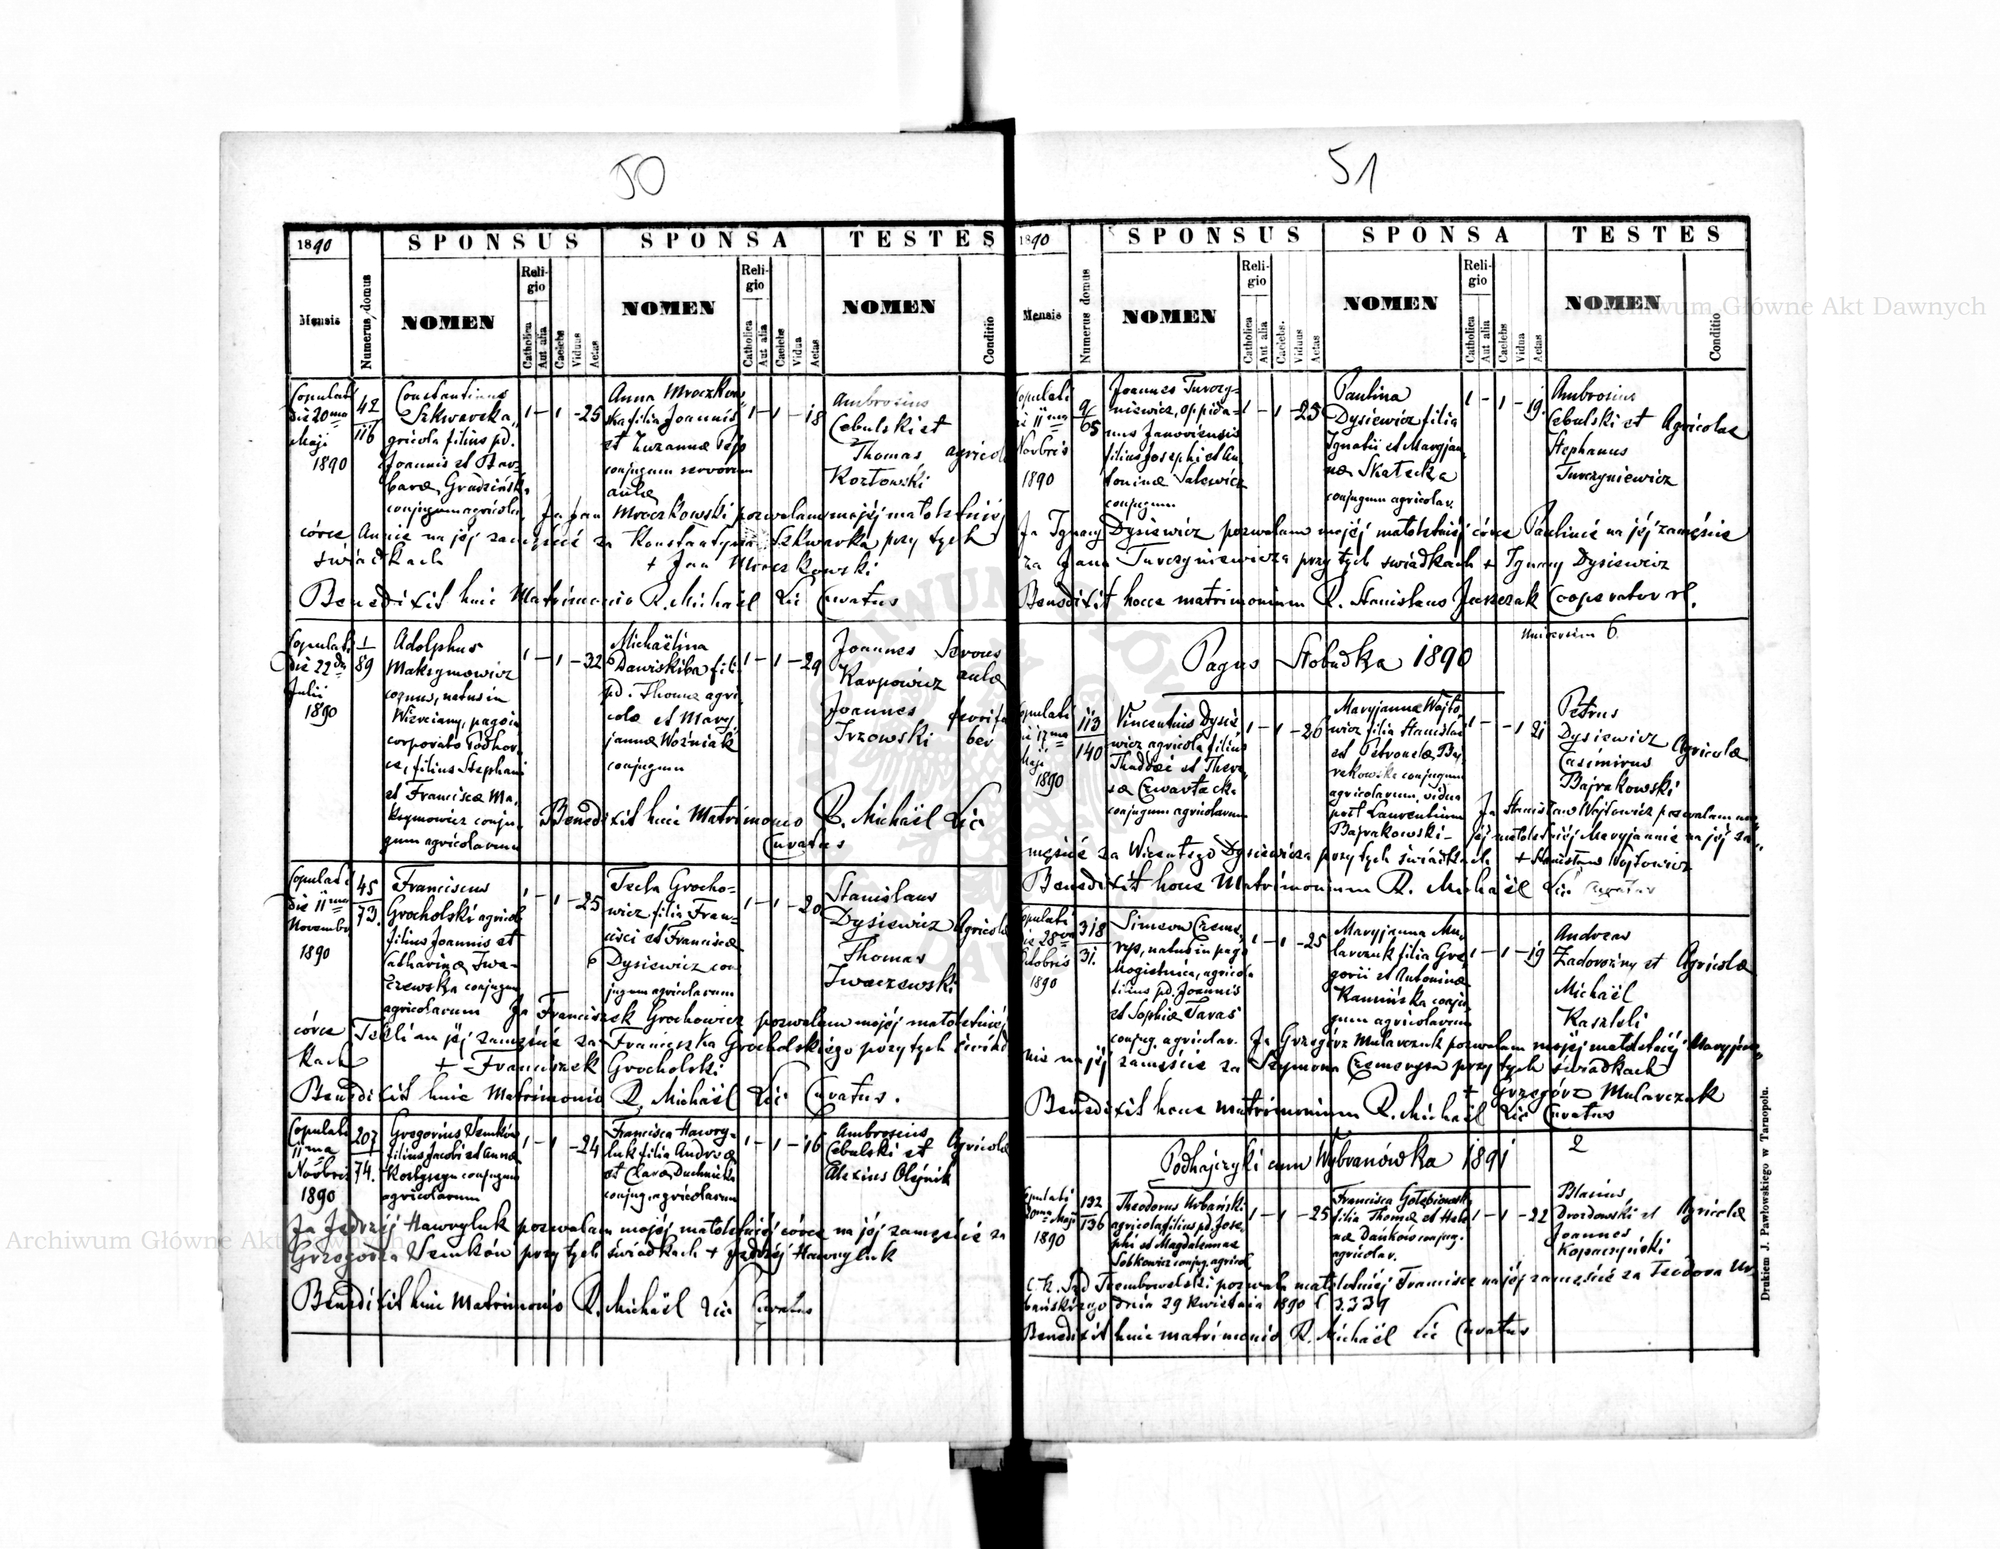 50
1890
SPONSUS
SPONSA
TESTES
Mensis
Numerus domus
NOMEN
Religio
Catholica
Aut alia
Caelebs
Viduus
Aetas
NOMEN
Religio
Catholica
Aut alia
Caelebs
Vidua
Aetas
NOMEN
Conditio
Copulati
die 20ma
Maji
1890
42
116
Constantinus
Szkwarka,
gricola filius pd.
Joannis et Bar-
barae Grudzińsk
conjugum agricola
1 - 1 - 25
Anna Mroczkow
ska filia Joannis
et Zuzannae
conjugum servorum
aulae
1 - 1 - 18
Ambrosius
Cebulski et
Thomas agricol
Kozłowski
Ja Jan Mroczkowski pozwalam mojéj małoletniéj
córce Annie na jéj zamęście za Konstantyna Szkwarka przy tych
świadkach + Jan Mroczkowski
Benedixit huic Matrimonio R. Michaël Lic Curatus
Copulati
die 22da
Julii
1890
1
89
Adolphus
Maksymowicz
coquus, natus in
Wierciany, pago in
corporato Podhor
ce, filius Stephani
et Franciscae Ma-
ksymowicz conju-
gum agricolarum
1 - 1 - 32
Michaëlina
Dawiskiba fili
pd. Thomae agri
colae et Mary
jannae Woźniak
conjugum
1 - 1 - 29
Joannes Servus
Karpowicz aulae
Joannes
Trzowski
Benedixit huic Matrimonio R. Michaël Lic
Curatus
Copulati
die 11ma
Novembr
1890
45
73.
Franciscus
Grocholski agricol
filius Joannis et
Catharinae Iwa-
czewska conjugum
agricolarum
1 - 1 - 25
Tecla Grocho-
wicz filia Fran-
cisci et Franciscae
Dysiewicz con
jugum agricolarum
1 - 1 - 20
Stanislaus
Dysiewicz Agricola
Thomas
Iwaczewski
Ja Franciszek Grochowicz pozwalam mojéj małoletniéj
córce Tekli na jéj zamęście za Franciszka Grocholskiego przy tych świad
kach + Franciszek Grocholski
Benedixit huic Matrimonio R. Michaël Lic Curatus.
Copulati
11ma
Novbris
1890
207
74.
Gregorius Semków
filius Jacobi et Annae
conjugum
agricolarum
1 - 1 - 24
Francisca Hawry-
luk filia Andreae
et Clarae
conjug. agricolarum
1 - 1 - 16
Ambrosius
Cebulski et Agricolae
Alexius Olejnik
Ja Jędrzéj Hawryluk pozwalam mojéj małoletniéj córce na jéj zamęście za
Grzegorza Semków przy tych świadkach + Jędrzéj Hawryluk
Benedixit huic Matrimonio R. Michaël Lic Curatus
51
1890
SPONSUS
SPONSA
TESTES
Mensis
Numerus domus
NOMEN
Religio
Catholica
Aut alia
Caelebs.
Viduus
Aetas
NOMEN
Religio
Catholica
Aut alia
Caelebs
Vidua
Aetas
NOMEN
Conditio
Copulati
die 11ma
Novbris
1890
9
65
Joannes Turczy-
niewicz, oppida-
nus Janoviensis
filius Josephi et An
toninae Salewicz
conjugum
1 - 1 - 25
Paulina
Dysiewicz filia
Ignatii et Maryjan-
nae Skałecka
conjugum agricolar.
1 - 1 - 19
Ambrosius
Cebulski et Agricolae
Stephanus
Turczyniewicz
Ja Ignacy Dysiewicz pozwalam mojéj małoletniéj córce Paulinie na jéj zamęście
za Jana Turczyniewicza przy tych świadkach + Ignacy Dysiewicz
Benedixit hocce matrimonium R. Stanislaus Juszczak Cooperator rl.
Universim 6.
Pagus Słobudka 1890
Copulati
die 17ma
Maji
1890
113
140
Vincentius Dysie-
wicz agricola filius
Thaddaei et There-
sae Czwartacka
conjugum agricolarum
1 - 1 - 26
Maryjanna Wojto-
wicz filia Stanislai
et Petronelae
conjugum
agricolarum, vidua
post Laurentium
Bajrakowski
1 - - 1 21
Petrus
Dysiewicz Agricolae
Casimirus
Bajrakowski
Ja Stanisław Wojtowicz pozwalam mo-
jéj małoletniéj Maryjannie na jéj za-
męście za Wincentego Dysiewicza przy tych świadkach + Stanisław Wojtowicz
Benedixit hocce Matrimonium R. Michaël Lic Curatus
Copulati
die 28va
Octobris
1890
318
31.
Simeon Czeme-
rys, natus in pago
Mogielnica, agricola
filius pd. Joannis
et Sophiae Taras
conjug. agricolar.
1 - 1 - 25
Maryjanna Mu-
larczuk filia Gre-
gorii et Antoninae
Kamińska conju-
gum agricolarum
1 - 1 - 19
Andreas
Zadorożny et Agricolae
Michaël
Kaszteli
Ja Grzegórz Mularczuk pozwalam mojéj małoletniéj Maryjan-
nie na jéj zamęście za Szymona Czemerysa przy tych świadkach
+ Grzegórz Mularczuk
Benedixit hocce matrimonium R. Michaël Lic Curatus
2
Podhajczyki cum Wybranówka 1891
Copulati
20ma Maji
1890
132
136
Theodorus Urbański
agricola filius pd. Jose-
phi et Magdalenae
Sobkowicz conjug. agricol.
1 - 1 - 25
Francisca Gołębiowsk
filia Thomae et Hele
nae Dańków conjug.
agricolar.
1 - 1 - 22
Blasius
Drozdowski et Agricolae
Joannes
Kopaczyński
C. K. Sąd Trembowelski pozwala małoletniéj Franciszce na jéj zamęście za Teodora Ur-
bańskiego dnia 29 kwietnia 1890 l 3339
Benedixit huic matrimonio R. Michaël Lic Curatus
Drukiem J. Pawłowskiego w Tarnopolu.
Archiwum Główne Akt Dawnych
Archiwum Główne Akt Dawnych